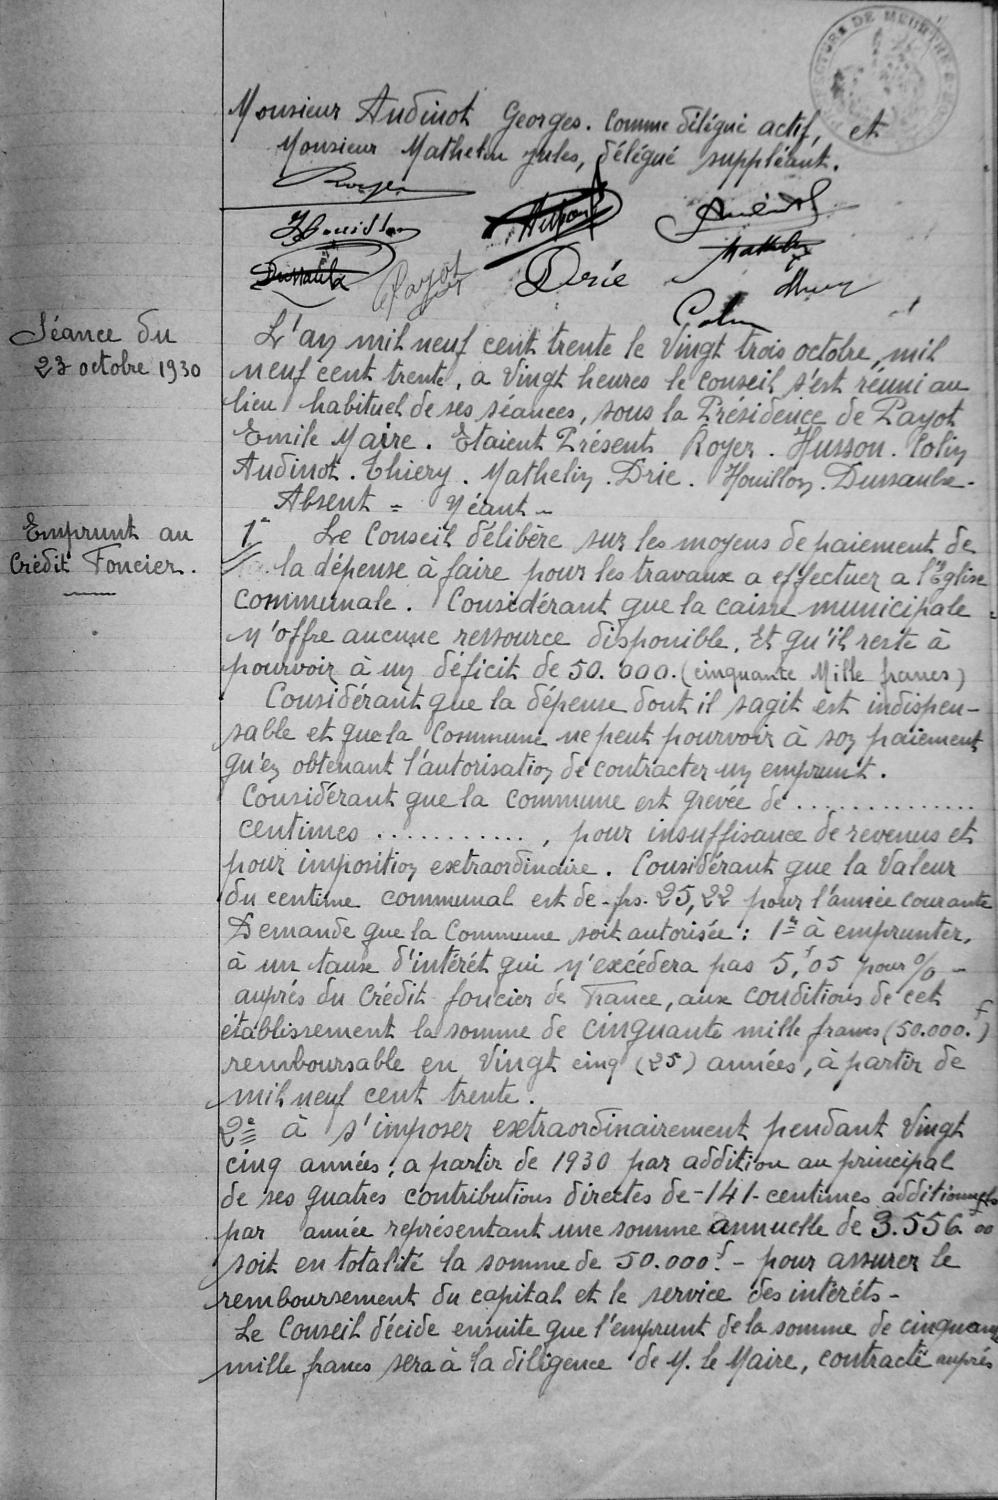 PRÉFECTURE DE MEURTHE &
Monsieur Audinot Georges. Comme délégué actif, et
Monsieur Mathelin Jules, délégué suppléant.
Royer
Houillon Husson Audinot
Dussaulx Payot Drié Mathelin
Thiery
Colin
Séance du
23 octobre 1930
L'an mil neuf cent trente le Vingt trois octobre, mil
neuf cent trente, a Vingt heures le Conseil s'est réuni au
lieu habituel de ses séances, sous la Présidence de Payot
Emile Maire. Etaient Présent Royer. Husson. Colin
Audinot. Thiery. Mathelin. Drie. Houillon. Dussaulx-
Absent = Néant -
Emprunt au
Crédit Foncier.
1° Le Conseil délibère sur les moyens de paiement de
la dépense à faire pour les travaux a effectuer a l'Eglise
Communale. Considérant que la caisse municipale
n'offre aucune ressource disponible, Et qu'il reste à
pourvoir à un déficit de 50.000. (cinquante Mille francs)
Considérant que la dépense dont il sagit est indispen-
sable et que la Commune ne peut pourvoir à son paiement
qu'en obtenant l'autorisation de contracter un emprunt.
Considérant que la Commune est grevée de ..............
centimes ............, pour insuffisance de revenus et
pour imposition extraordinaire. Considérant que la Valeur
du centime communal est de - frs. 25,22 pour l'année courante
Demande que la Commune soit autorisée : 1° à emprunter,
à un taux d'intérêt qui n'excédera pas 5,f05 pour % -
auprés du Crédit foncier de France, aux conditions de cet
établissement la somme de cinquante mille francs (50.000.f)
remboursable en Vingt cinq (25) années, à partir de
mil neuf cent trente.
2° à s'imposer extraordinairement pendant Vingt
cinq années, a partir de 1930 par addition au principal
de ses quatres contributions directes de - 141 - centimes additionnels
par année représentant une somme annuelle de 3.556f00
soit en totalité la somme de 50.000f - pour assurer le
remboursement du capital et le service des intérêts -
Le Conseil décide ensuite que l'emprunt de la somme de cinquante
mille francs sera à la diligence de M. le Maire, contracté auprés